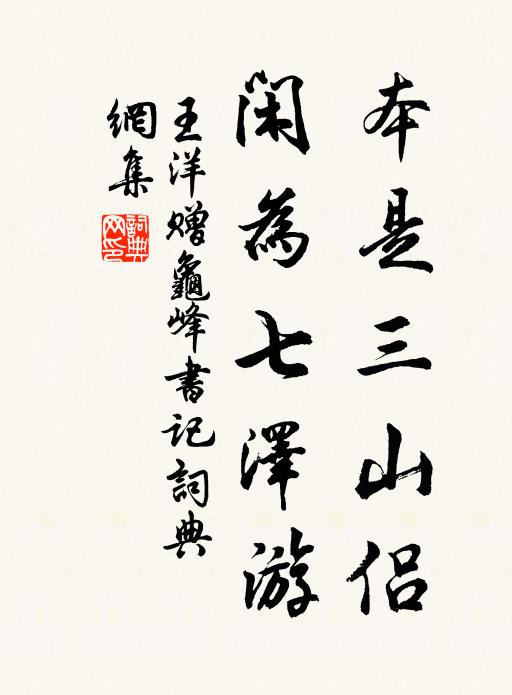 本是三山侣
闲為七澤游
王洋赠龜峰書記詞典
網集
詞典
网印